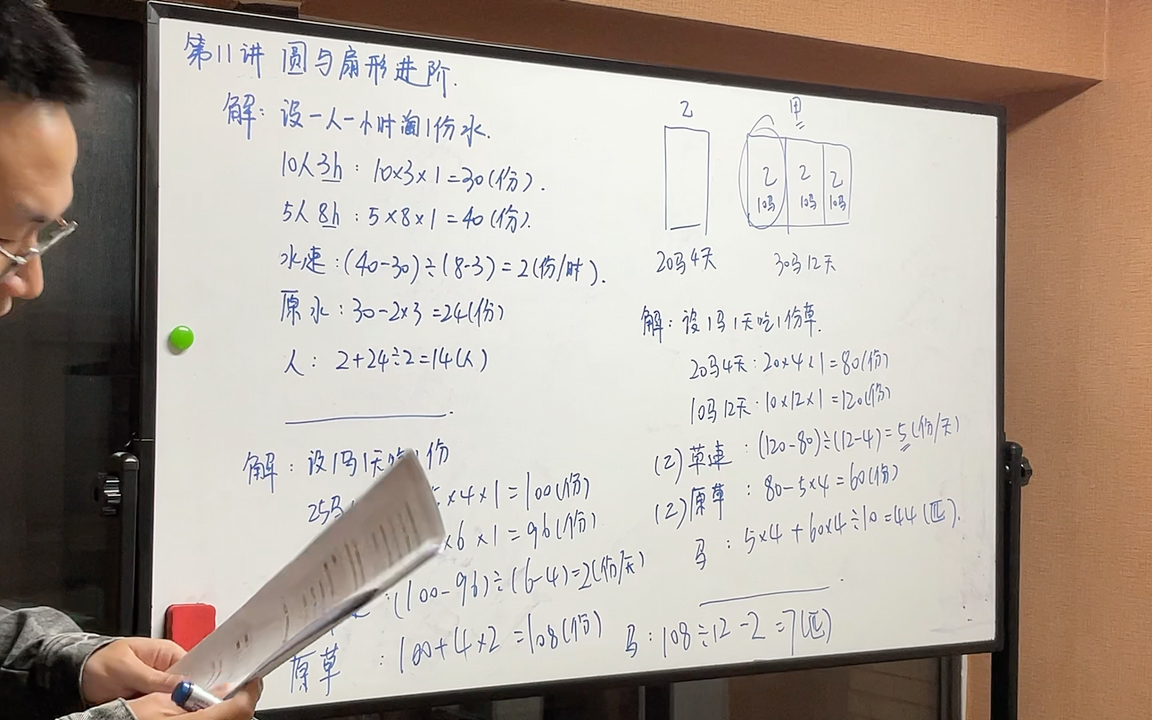 第11讲 圆与扇形进阶.
解：设一人一小时淘1份水.
10人3h：10×3×1=30(份).
5人8h：5×8×1=40(份).
水速：(40-30)÷(8-3)=2(份/时).
原水：30-2×3=24(份)
人：2+24÷2=14(人)
解：设1马1天吃1份
25马
×4×1=100(份)
×6×1=96(份)
:(100-96)÷(6-4)=2(份/天)
原草：100+4×2=108(份)
马：108÷12-2=7(匹)
乙
甲
乙 乙 乙
10马 10马 10马
20马4天
30马12天
解：设1马1天吃1份草.
20马4天：20×4×1=80(份)
10马12天：10×12×1=120(份)
(乙)草速：(120-80)÷(12-4)=5(份/天)
(乙)原草：80-5×4=60(份)
马：5×4+60×4÷10=44(匹).